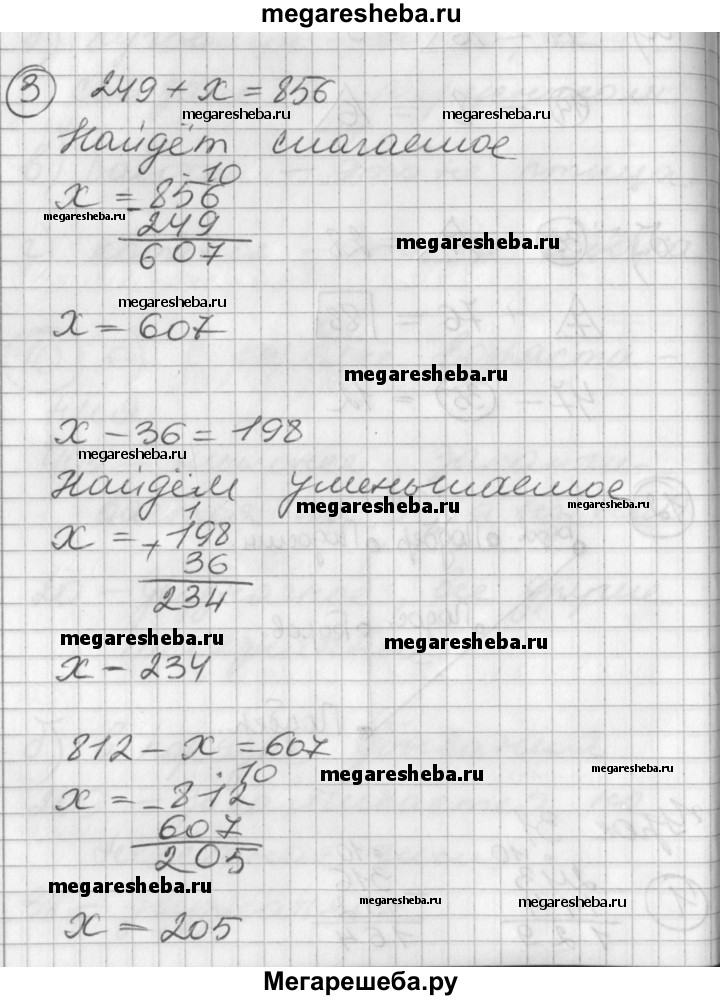 megaresheba.ru
3 249 + x = 856
megaresheba.ru megaresheba.ru
Найдём слагаемое
· 10
x = - 856
megaresheba.ru 249
megaresheba.ru
607
megaresheba.ru
x = 607
megaresheba.ru
x - 36 = 198
megaresheba.ru
Найдём уменьшаемое
megaresheba.ru
1
x = + 198
36
234
megaresheba.ru megaresheba.ru
x - 234
812 - x = 607
megaresheba.ru megaresheba.ru
· 10
x = - 812
607
205
megaresheba.ru
megaresheba.ru megaresheba.ru
x = 205
Мегарешеба.ру